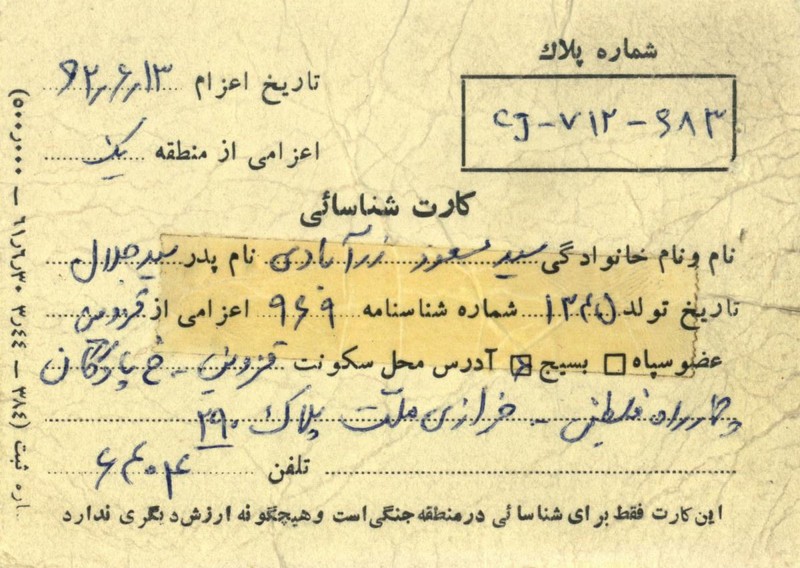 شماره پلاک
CJ-۷۱۲-۶۸۳
تاریخ اعزام ۶۲٫۶٫۱۳
اعزامی از منطقه یک
کارت شناسائی
نام و نام خانوادگی سید مسعود زرآبادی نام پدر سید جلال
تاریخ تولد ۱۳۴۵ شماره شناسنامه ۹۶۹ اعزامی از قزوین
عضو سپاه بسیج آدرس محل سکونت قزوین - خ پادگان
چهارراه فلسطین - خرازی ملت پلاک ۲۹۰
تلفن ۶۴۰۴
این کارت فقط برای شناسائی در منطقه جنگی است و هیچگونه ارزش دیگری ندارد
(۵۰۰٫۰۰۰ — ۶۱٫۶٫۳۰ ۳٫۴۴ — ۳۸۴) ثبت